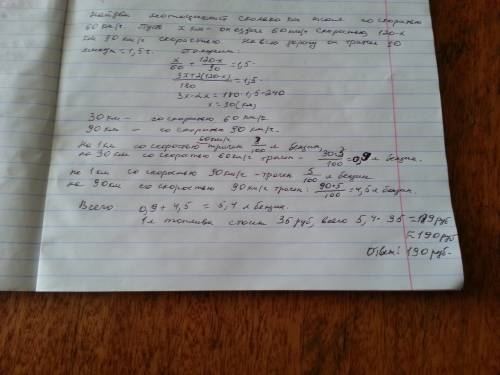 Найдем мотоциклист сколько км ехал со скоростью
60 км/ч. Пусть x км - он ехал 60 км/ч скоростью, 120-x
км 90 км/ч скоростью. На всю дорогу он тратил 90
минут = 1,5 ч. Получаем:
x/60 + 120-x/90 = 1,5
3x+2(120-x)/180 = 1,5
3x-2x = 180·1,5-240
x = 30 (км)
30 км - со скоростью 60 км/ч.
90 км - со скоростью 90 км/ч.
на 1 км со скоростью 60 км/ч тратил 3/100 л бензин.
на 30 км со скоростью 60 км/ч тратил - 30·3/100 = 0,9 л бензин.
на 1 км со скоростью 90 км/ч - тратил 5/100 л бензин
на 90 км со скоростью 90 км/ч тратил: 90·5/100 = 4,5 л бензин.
Всего 0,9 + 4,5 = 5,4 л бензин.
1 л топлива стоит 35 руб, всего 5,4 · 35 = 189 руб
≈ 190 руб
Ответ: 190 руб.